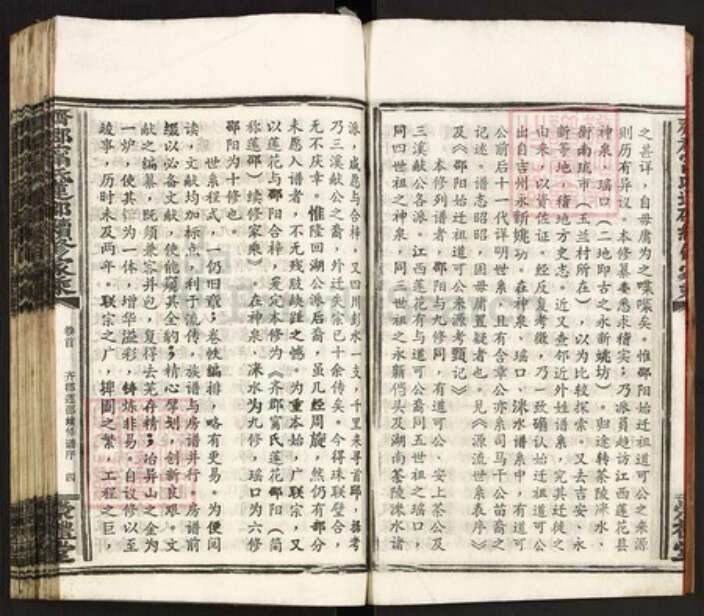 之甚详，自毋庸为之喋喋矣。惟邵阳始迁祖道可公之来源
则历有异议。本修纂委悉求稽实；乃派员趋访江西莲花县
神泉，瑶口（二地即古之永新姚坊）。归途转茶陵洣水、
衡南琉市（玉兰村所在），以为比较探索。又去吉安、永
新等地，稽地方史志。近又查邻近外姓谱系，究其迁徙之
由来，以资佐证。经反复考徵，乃一致确认始迁祖道可公
出自吉州永新姚功。在神泉、瑶口、洣水谱系中，有道可
公前后十一代详明世系，且有含章公亦系司马干公苗裔之
记述。谱志昭昭，固毋庸置疑者也。见《源流世系表序》
及《邵阳始迁祖道可公来源考甄记》
本修列谱者，邵阳与九修同，有道可公、安上茶公及
三溪献公各派。江西莲花有与道可公裔同五世祖之瑶口；
同四世祖之神泉，同三世祖之永新 头及湖南茶陵洣水诸
派，咸愿与合梓，又四川彭水一支，千里来寻首邵，据考
乃三溪献公之裔，外迁失宗已十余传矣。今得珠联璧合，
无不庆幸。惟隆回湖公派后裔，虽几经周旋，然仍有部分
未愿入谱者，不无残肢缺趾之憾。为重本始，广联宗，又
以莲花与邵阳合梓，爰定本修为《齐郡甯氏莲花邵阳（简
称莲邵）续修家乘》在神泉、洣水为九修，瑶口为六修
邵阳为十修也。
世系程式，一仍旧章；卷帙编排，略有更易。为便阅
读，文献均加标点，利于流传，族谱与房谱并行，房谱前
缀以必备文献，使能窥其全豹；精心擘划，创新良艰。文
献之编纂，既须兼容并包，复得去芜存精；冶异山之金为
一炉，使其 为一体，增华溢彩，铸炼非易。自议修以至
竣事，历时未及两年。联宗之广，裨图之繁，工程之巨，
齊郡甯氏蓮邵續修家乘
卷首
齐郡莲邵续修谱序
四